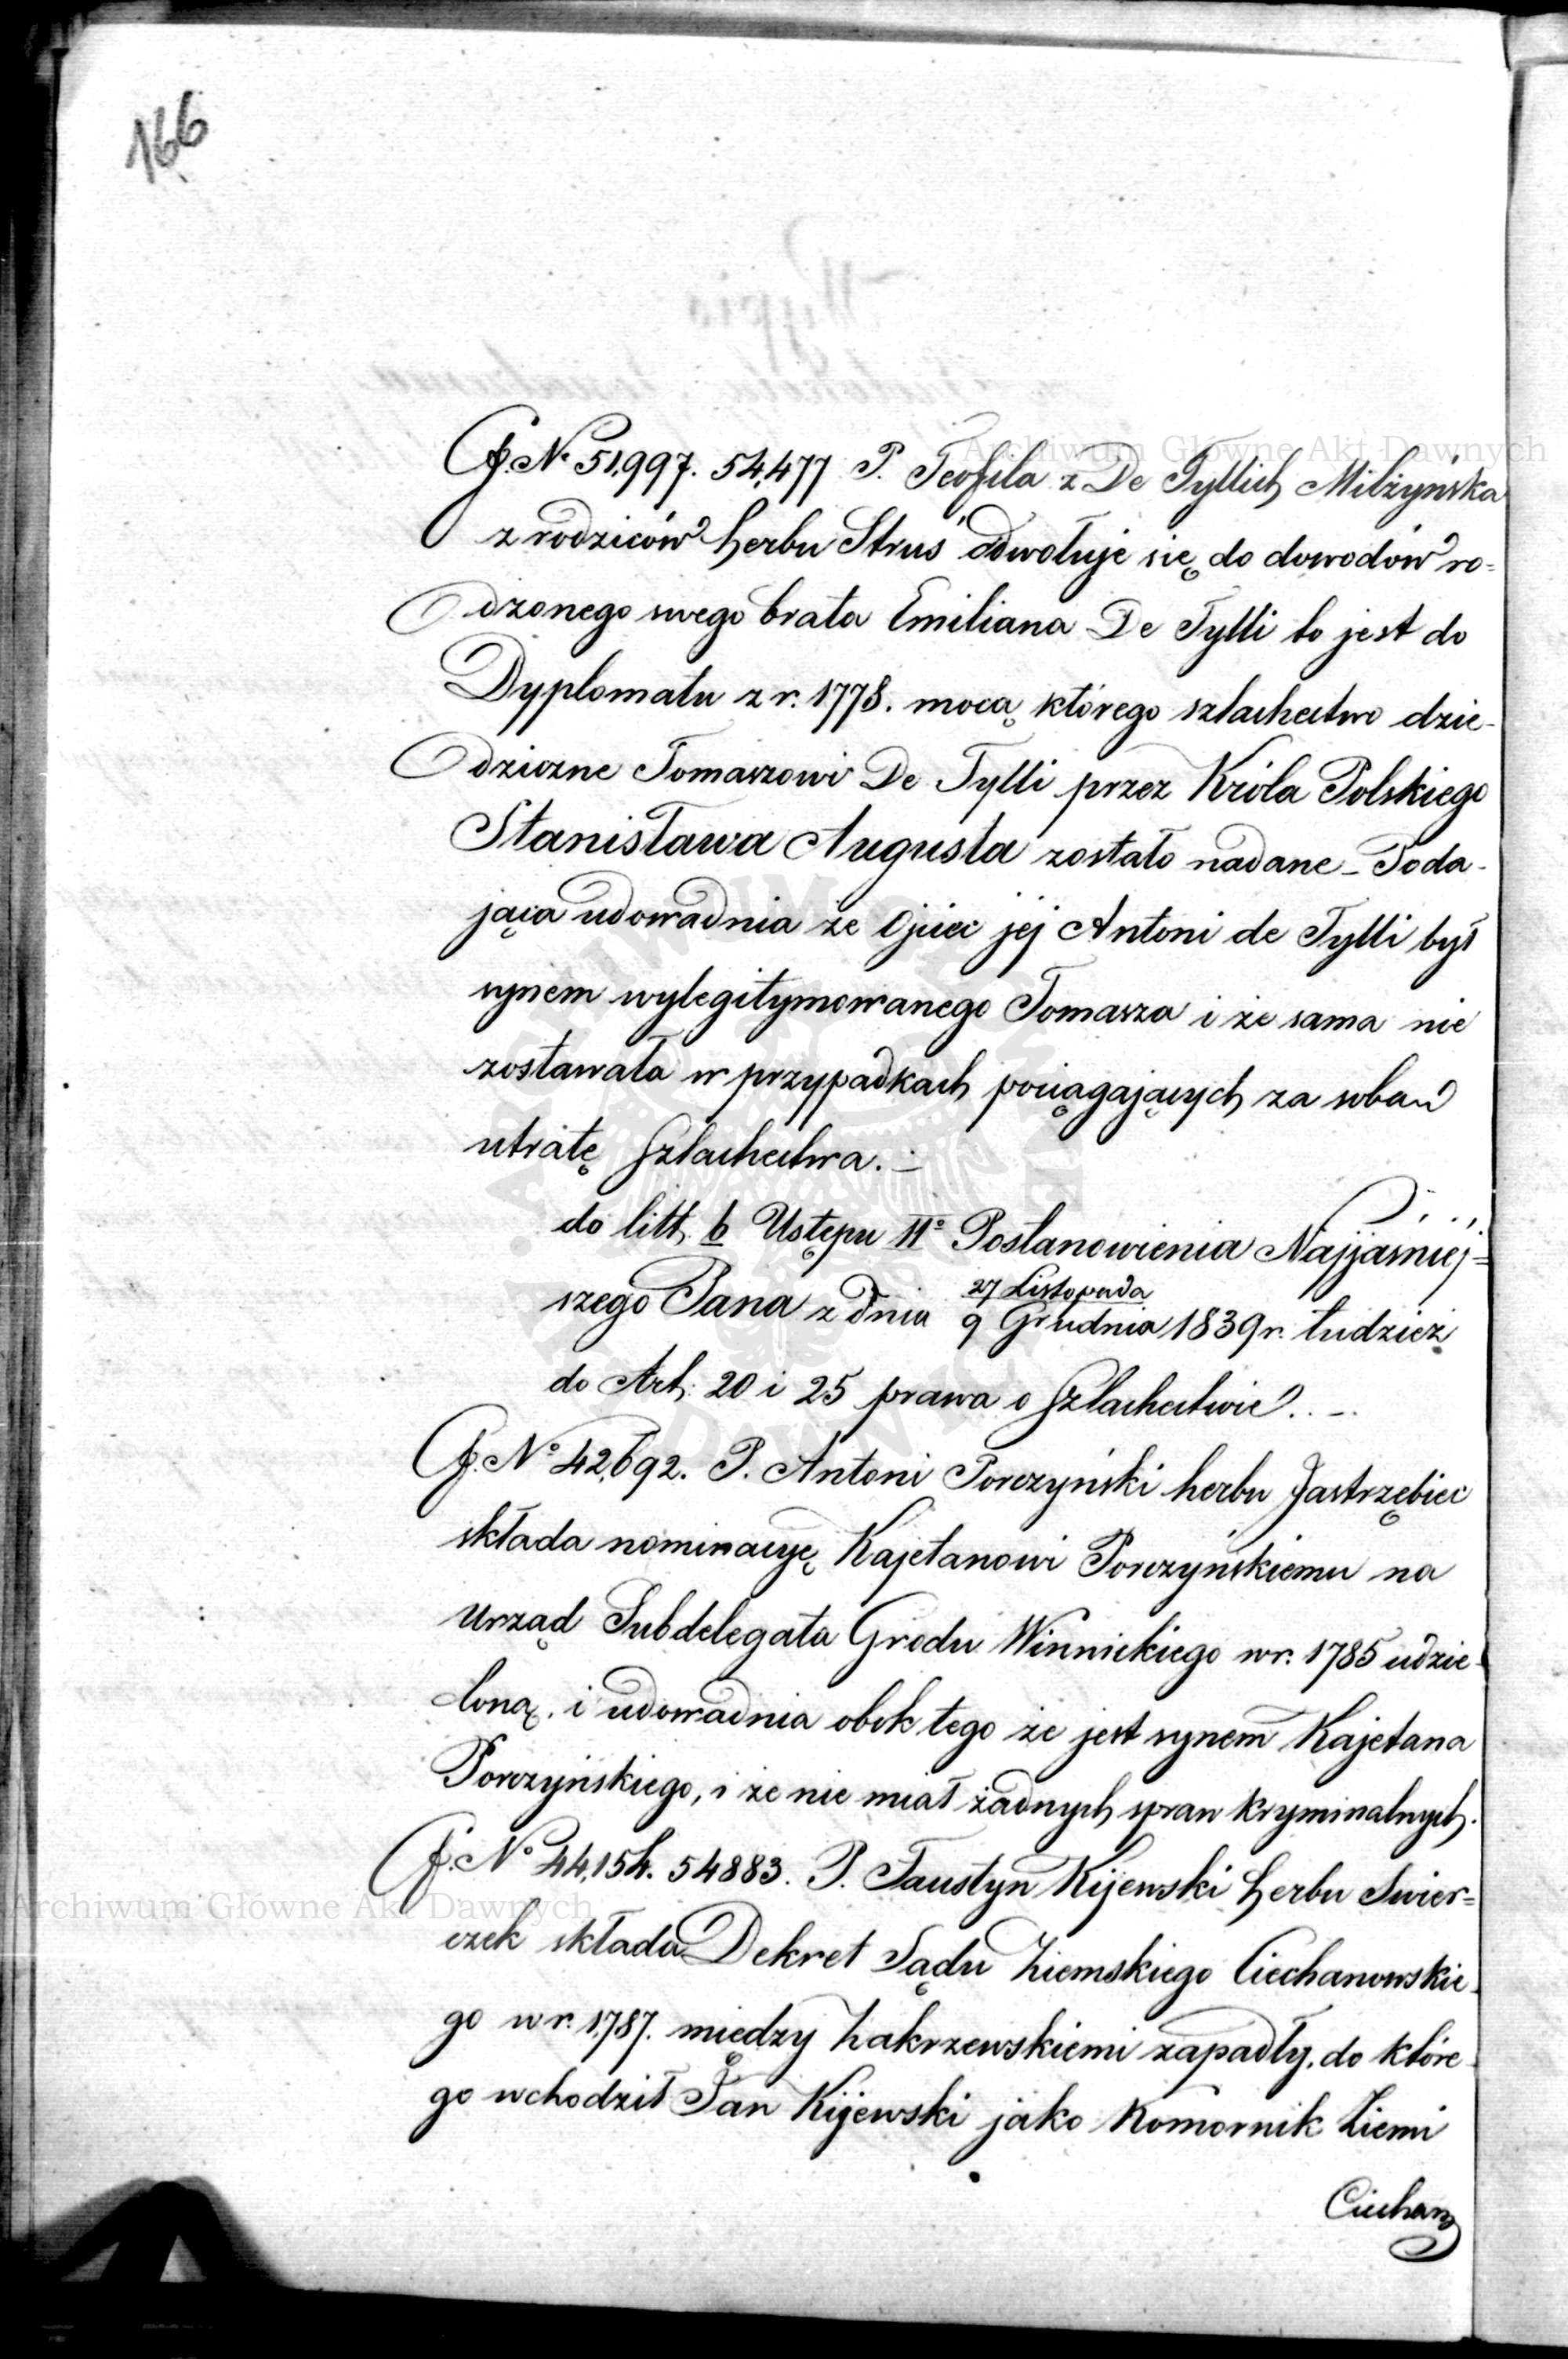 166
Archiwum Główne Akt Dawnych
G. N. 51,997. 54,477 P. Teofila z De Tyllich Milżyńska
z rodziców herbu Struś odwołuje się do dowodów ro=
dzonego swego brata Emiliana De Tylli to jest do
Dyplomatu z r. 1778. mocą którego szlachectwo dzie-
dziczne Tomaszowi De Tylli przez Króla Polskiego
Stanisława Augusta zostało nadane - Poda-
jąca udowadnia że Ojciec jéj Antoni de Tylli był
synem wylegitymowanego Tomasza i że sama nie
zostawała w przypadkach pociągających za sobą
utratę Szlachectwa. -
do litt. b Ustępu IIo Postanowienia Najjaśniéj=
szego Pana z dnia 27 Listopada / 9 Grudnia 1839 r. tudzież
do Art: 20 i 25 prawa o Szlachectwie. . -
G. No 42,692. P. Antoni Porczyński herbu Jastrzębiec
składa nominacyę Kajetanowi Porczyńskiemu na
Urząd Subdelegata Grodu Winnickiego w r. 1785 udzie-
loną. i udowadnia obok tego że jest synem Kajetana
Porczyńskiego, i że nie miał żadnych spraw kryminalnych.
G. No 44,154. 54883. P. Faustyn Kijewski herbu Swier=
Archiwum Główne Akt Dawnych
czek składa Dekret Sądu Ziemskiego Ciechanowskie-
go w r. 1787. między Zakrzewskiemi zapadły, do które-
go wchodził Jan Kijewski jako Komornik Ziemi
Ciechan